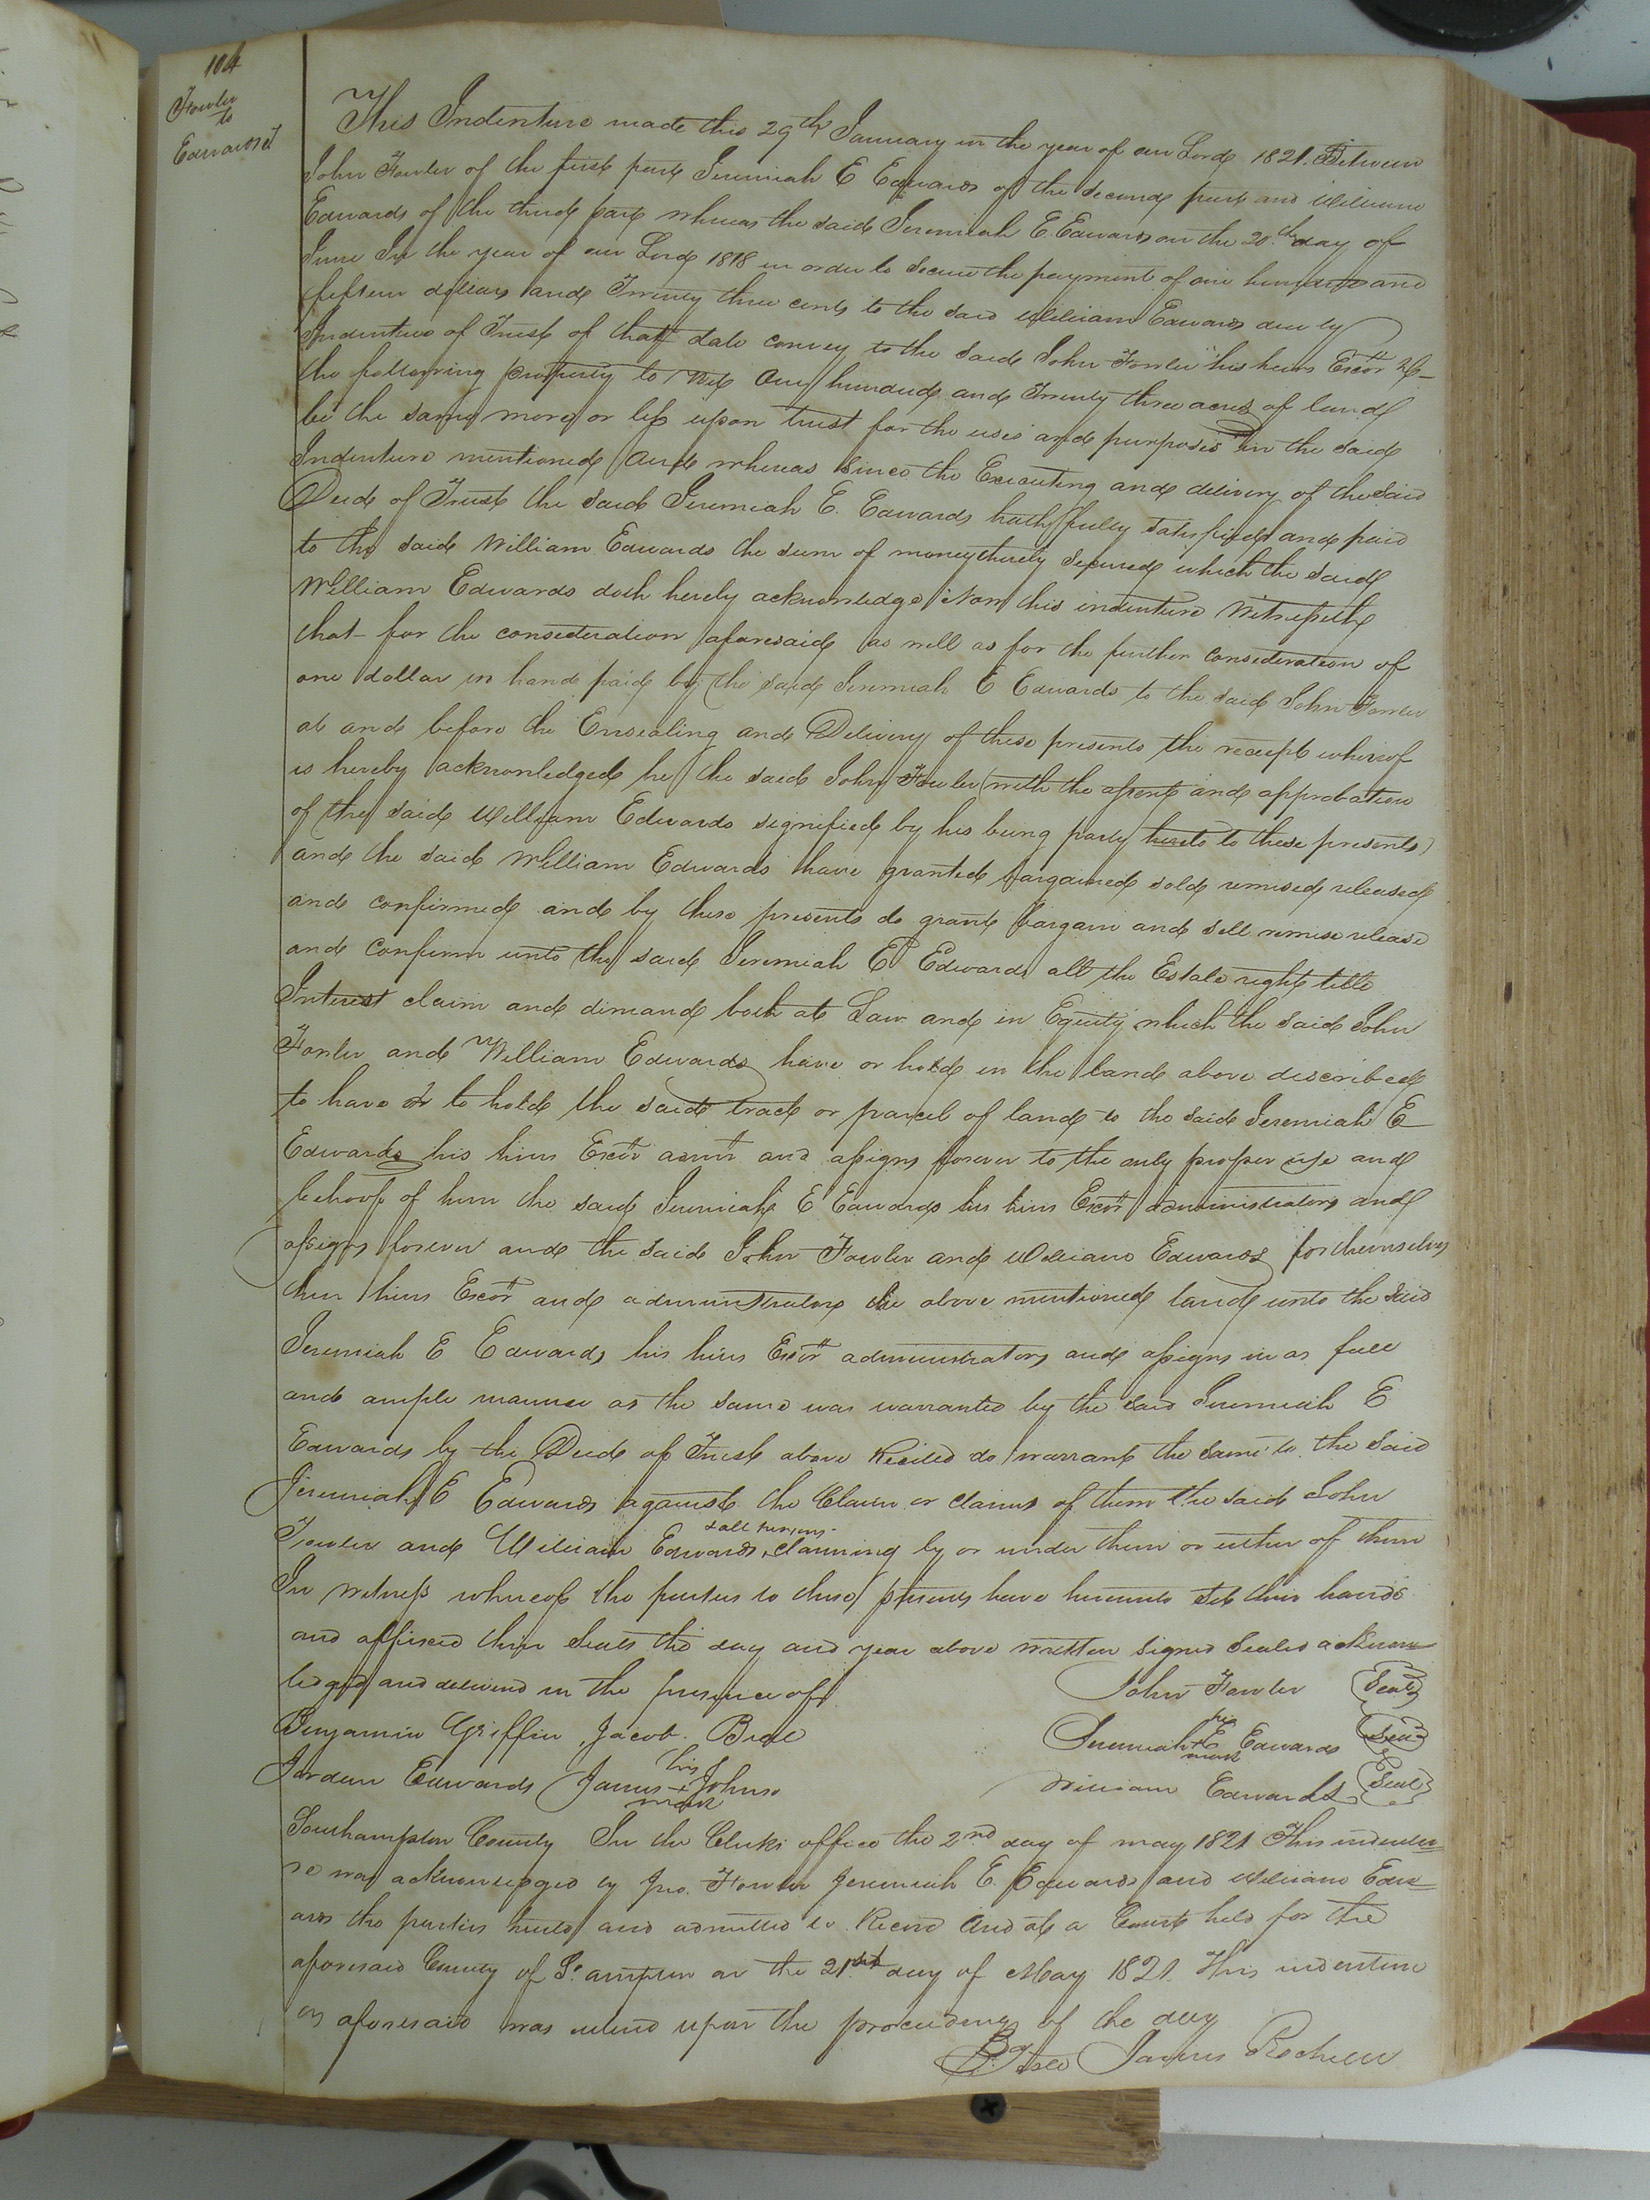 104
Fowler
to
Edwards
This Indenture made this 29th January in the year of our Lord 1821. Between
John Fowler of the first part Jeremiah E Edwards of the second part and William
Edwards of the third part whereas the said Jeremiah E. Edwards on the 20.th day of
June In the year of our Lord 1818 in order to secure the payment of one hundred and
fifteen dollars and Twenty three cents to the said William Edwards due by
Indenture of Trust of that date convey to the said John Fowler his heirs Excrs &c
the following property to Wit One hundred and Twenty three acres of land
be the same more or less upon trust for the uses and purposes in the said
Indenture mentioned And whereas since the Executing and delivery of the said
Deed of Trust the said Jeremiah E. Edwards hath fully satisfied and paid
to the said William Edwards the sum of money thereby secured which the said
William Edwards doth hereby acknowledge Now this indenture Witnesseth
that for the consideration aforesaid as well as for the further consideration of
one dollar in hand paid by the said Jeremiah E Edwards to the said John Fowler
at and before the Ensealing and Delivery of these presents the receipt whereof
is hereby acknowledged he the said John Fowler (with the assent and approbation
of the said William Edwards signified by his being party hereto to these presents)
and the said William Edwards have granted bargained sold remised released
and confirmed and by these presents do grant bargain and sell remise release
and confirm unto the said Jeremiah E Edwards all the Estate right title
Interest claim and demand both at Law and in Equity which the said John
Fowler and William Edwards have or hold in the land above described
to have & to hold the said tract or parcel of land to the said Jeremiah E
Edwards his heirs Excrs admrs and assigns forever to the only proper use and
behoof of him the said Jeremiah E Edwards his heirs Excrs administrators and
assigns forever and the said John Fowler and William Edwards for themselves
their heirs Excrs and administrators the above mentioned land unto the said
Jeremiah E Edwards his heirs Excrs administrators and assigns in as full
and ample manner as the same was warranted by the said Jeremiah E
Edwards by the Deed of Trust above Recited do warrant the same to the said
Jeremiah E Edwards against the Claim or claims of them the said John
Fowler and William Edwards & all persons claiming by or under them or either of them
In witness whereof the parties to these presents have hereunto set their hands
and affixed their seals the day and year above written signed sealed acknow
ledged and delivered in the presence of
John Fowler Seal
Benjamin Griffin, Jacob
Jeremiah his E mark Edwards Seal
Jordan Edwards James his + mark Johnso
William Edwards Seal
Southampton County In the Clerks office the 2nd day of may 1821 This indentu
re was acknowledged by Jno. Fowler Jeremiah E. Edwards and William Edw
ards the parties hereto and admitted to Record And at a Court held for the
aforesaid County of So ampton on the 21st day of May 1821. This indenture
as aforesaid was entered upon the proceedings of the day
Teste James Rochelle